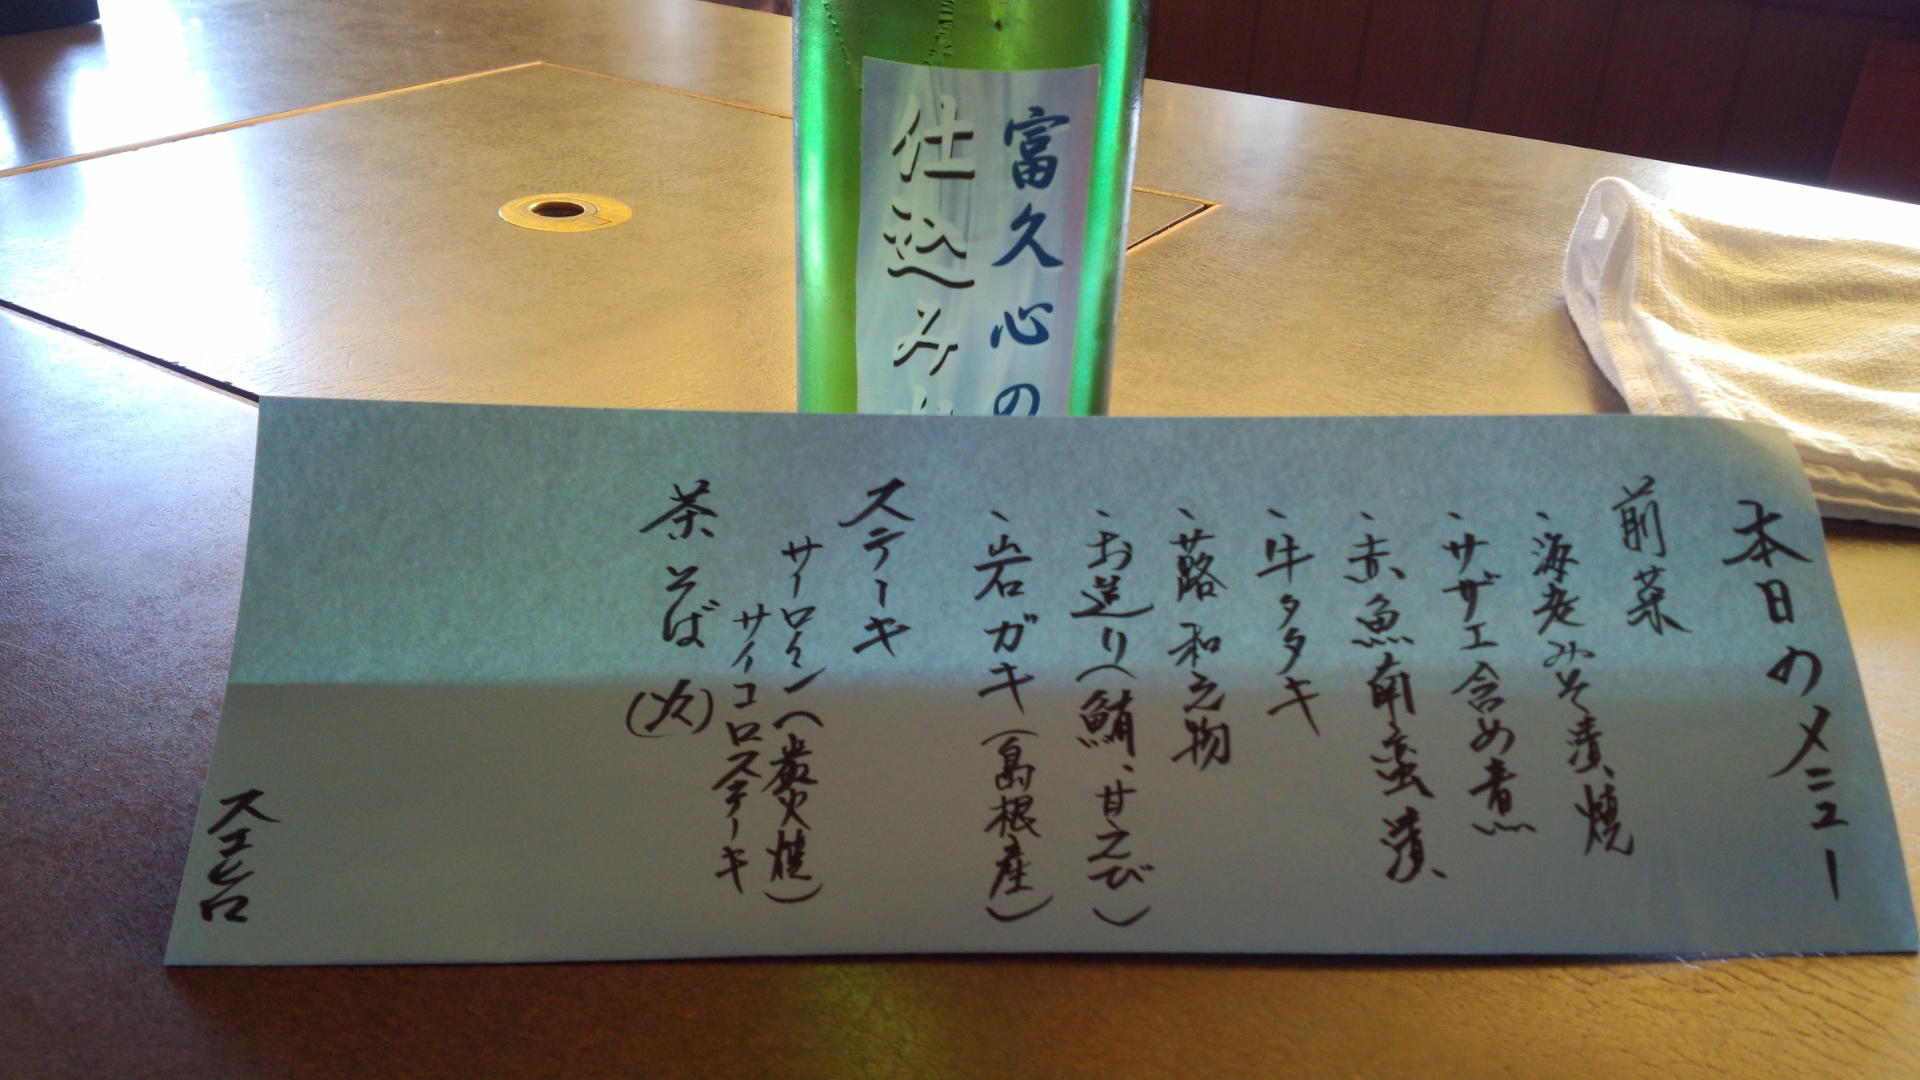 富久心の
仕込み水
本日のメニュー
前菜
、海老みそ漬焼
、サザエ含め煮
、赤魚南蛮漬
、牛タタキ
、蕗和え物
、お造り(鮪、甘えび)
、岩ガキ(島根産)
ステーキ
サーロイン(炭火焼)
サイコロステーキ
茶そば
スエヒロ